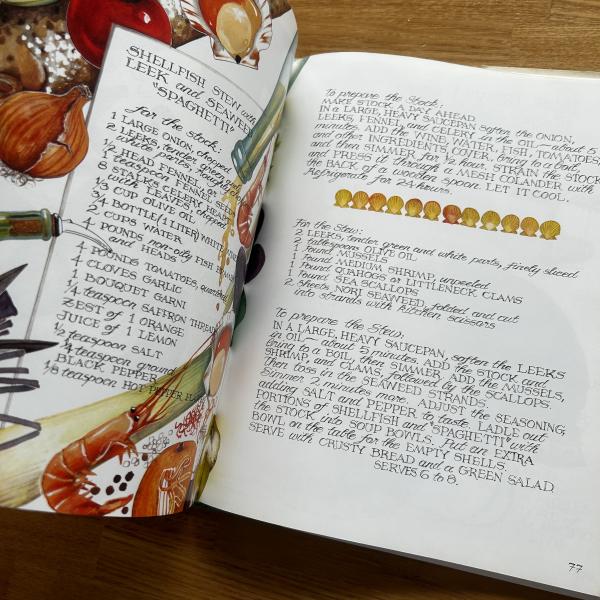 SHELLFISH STEW with
LEEK and SEAWEED
"SPAGHETTI"
for the stock:
1 LARGE ONION, chopped
2 LEEKS, tender green and
white parts,
1/2 HEAD FENNEL
1 teaspoon FENNEL SEEDS
8 STALKS CELERY HEART
with LEAVES, chopped
3/4 CUP OLIVE OIL
3/4 BOTTLE (1 LITER) WHITE WINE
2 CUPS WATER
4 POUNDS non-oily FISH BONES
and HEADS
4 POUNDS TOMATOES, quartered
4 CLOVES GARLIC
1 BOUQUET GARNI
1/4 teaspoon SAFFRON THREADS
ZEST of 1 ORANGE
JUICE of 1 LEMON
1/2 teaspoon SALT
1/4 teaspoon ground
BLACK PEPPER
1/8 teaspoon HOT PEPPER
To prepare the Stock:
MAKE STOCK A DAY AHEAD.
IN A LARGE, HEAVY SAUCEPAN soften the ONION,
LEEKS, FENNEL and CELERY in the OIL—about 5
minutes. ADD the WINE, WATER, FISH, TOMATOES,
and other INGREDIENTS. COVER, bring to a boil
and then SIMMER for 1/2 hour. STRAIN the STOCK
and PRESS it through a MESH COLANDER with
the BACK of a wooden spoon. LET IT COOL.
Refrigerate for 24 hours.
For the Stew:
2 LEEKS, tender green and white parts, finely sliced
2 tablespoons OLIVE OIL
1 Pound MUSSELS
1 Pound MEDIUM SHRIMP, unpeeled
1 Pound QUAHOGS or LITTLENECK CLAMS
1 Pound SEA SCALLOPS
2 sheets NORI SEAWEED, folded and cut
into strands with kitchen scissors
To prepare the Stew:
IN A LARGE, HEAVY SAUCEPAN, soften the LEEKS
in OIL— about 5 minutes. ADD the STOCK and
bring to a BOIL, then SIMMER. ADD the MUSSELS,
SHRIMP, and CLAMS, followed by the SCALLOPS.
Then toss in the SEAWEED STRANDS.
Simmer 2 minutes more. ADJUST the SEASONING,
adding SALT and PEPPER to taste. LADLE out
PORTIONS of SHELLFISH and "SPAGHETTI" with
the STOCK into SOUP BOWLS. Put an EXTRA
BOWL on the table for the EMPTY SHELLS.
SERVE with CRUSTY BREAD and a GREEN SALAD.
SERVES 6 to 8.
77